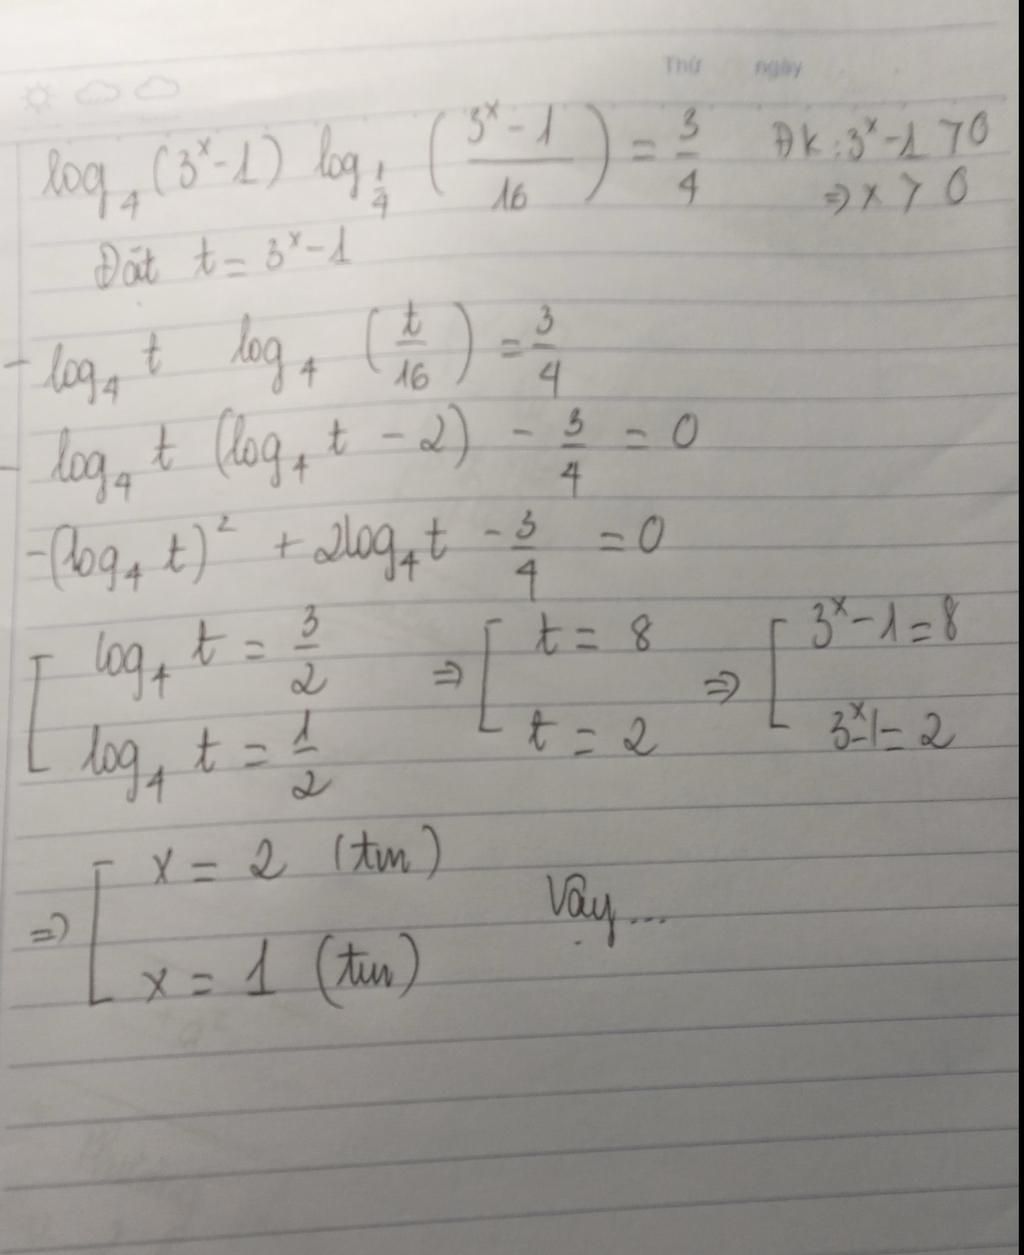 Thứ ngày
log₄ (3ˣ-1) log_{1/4} ((3ˣ-1)/16) = 3/4 ĐK: 3ˣ-1 > 0
⇒ x > 0
Đặt t = 3ˣ-1
- log₄ t log₄ (t/16) = 3/4
- log₄ t (log₄ t - 2) - 3/4 = 0
-(log₄ t)² + 2log₄ t - 3/4 = 0
[ log₄ t = 3/2 ⇒ [ t = 8 ⇒ [ 3ˣ-1 = 8
log₄ t = 1/2 t = 2 3ˣ-1 = 2
⇒ [ x = 2 (tm)
Vậy...
x = 1 (tm)